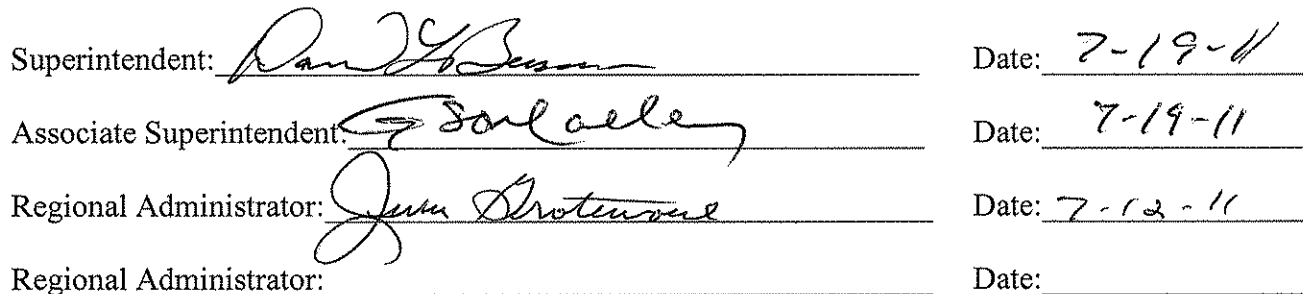 Superintendent: Date: 7-19-11
Associate Superintendent: Date: 7-19-11
Regional Administrator: Date: 7-12-11
Regional Administrator: Date: